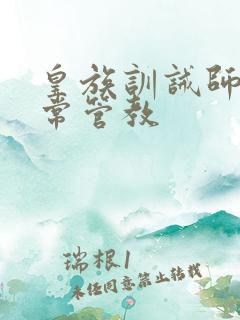 皇族訓誡師
常管教
瑞根1
未经同意禁止转载